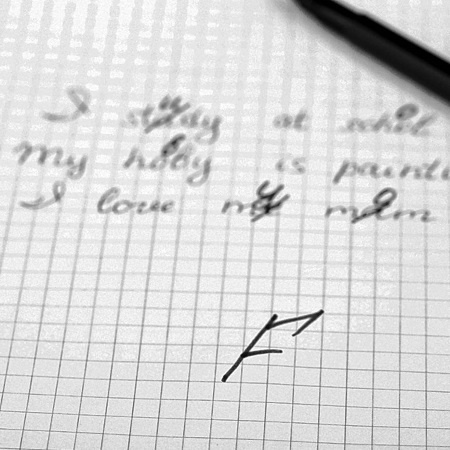 I study at school
My hobby is painti
I love my mum
F